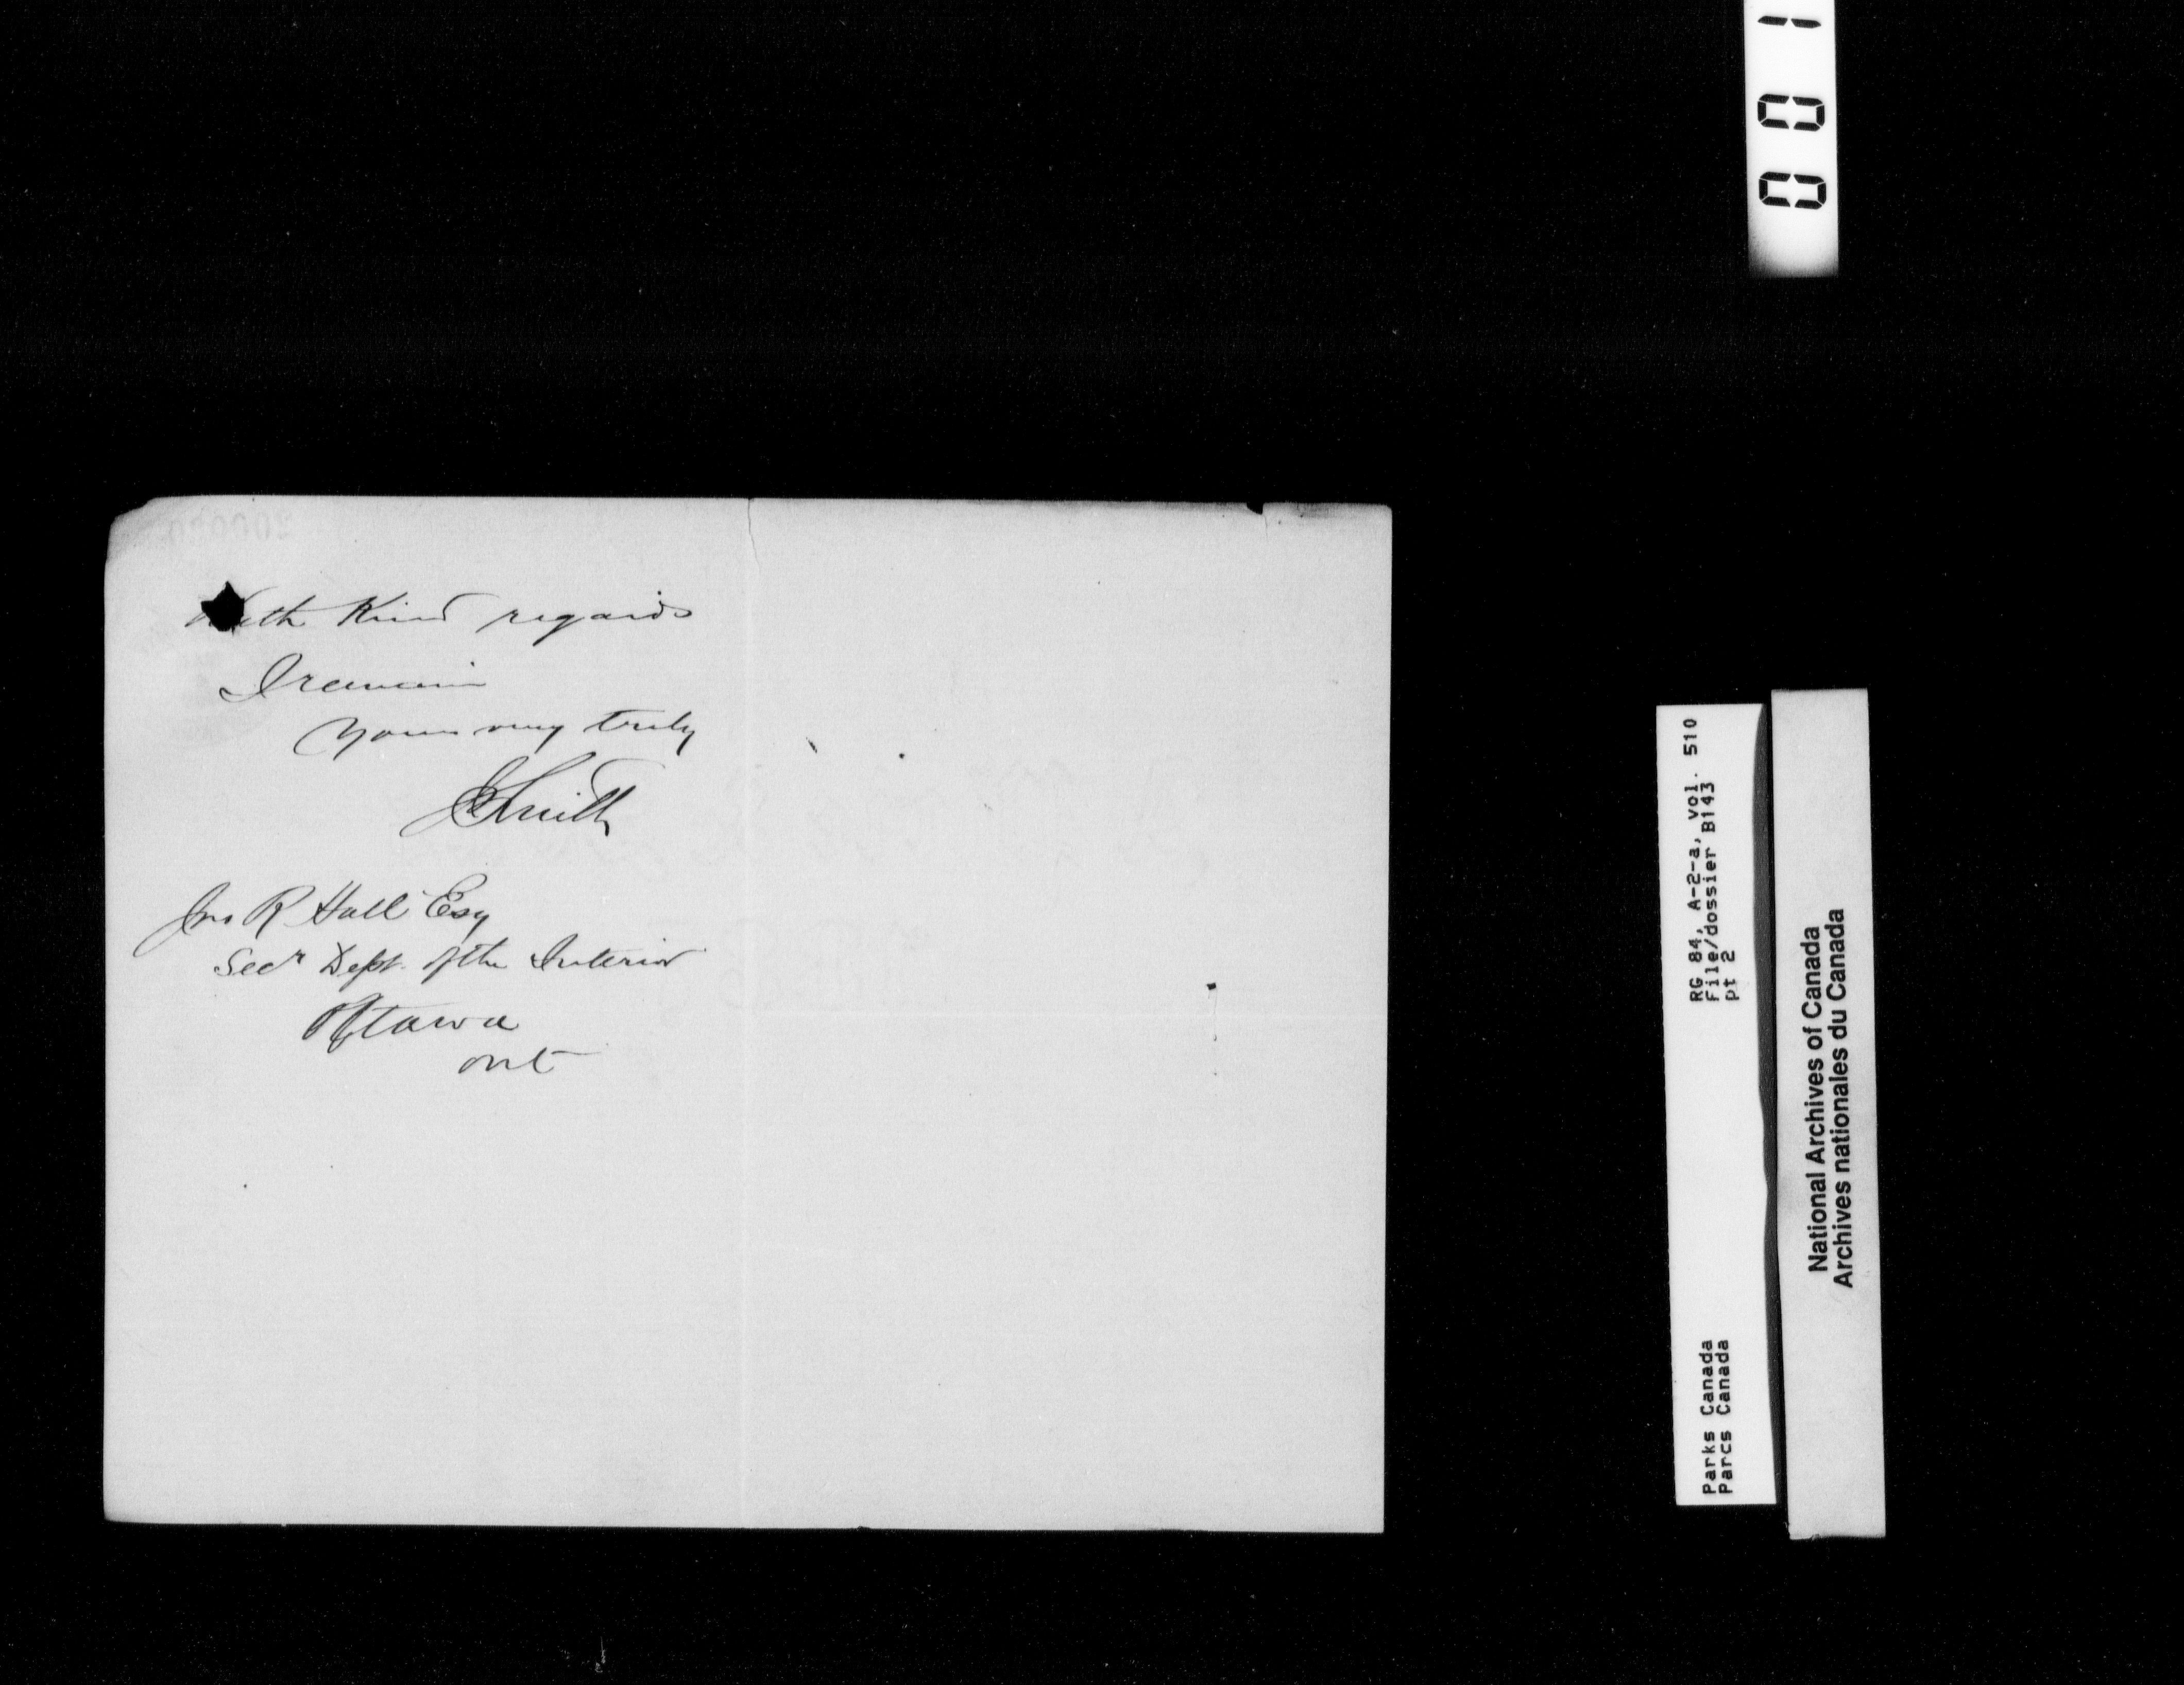 With Kind regards
I remain
Yours very truly
J Smith
Jno R Hall Esq
Secy Dept. of the Interior
Ottawa
Ont
001
RG 84, A-2-a, vol. 510
File/dossier B143
pt 2
Parks Canada
Parcs Canada
National Archives of Canada
Archives nationales du Canada